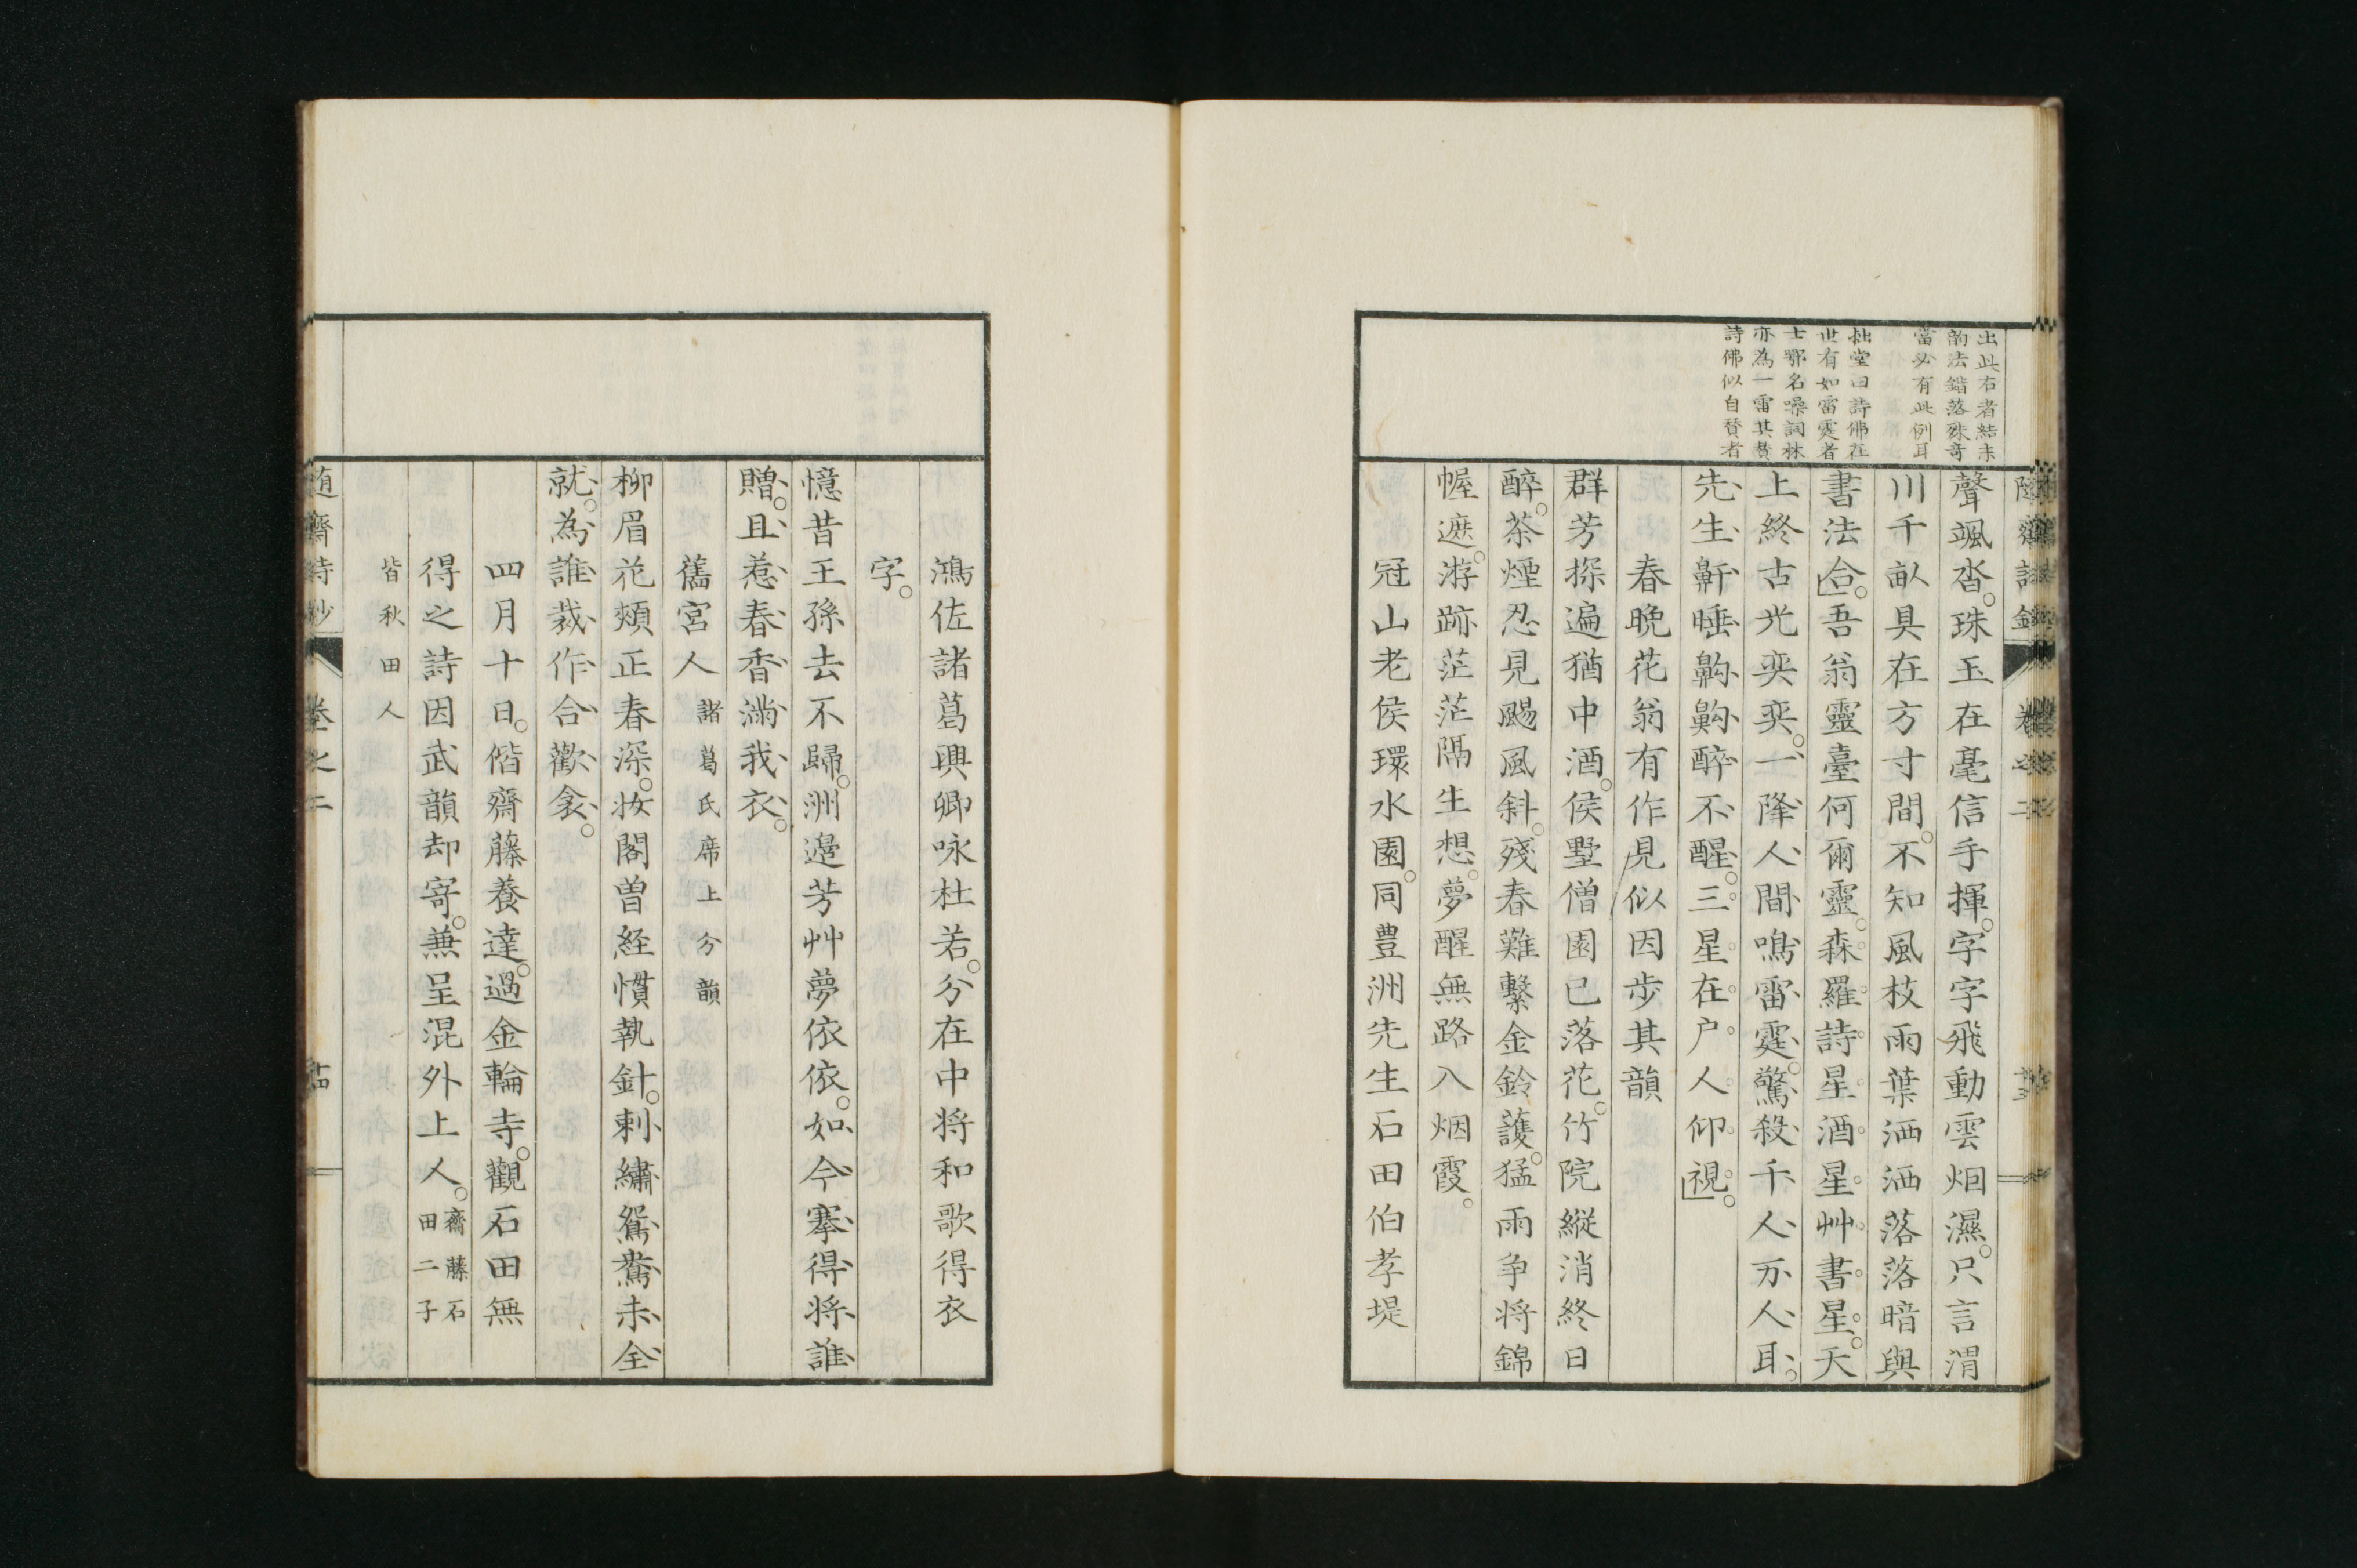 出此右者結末
的法錯落殊奇
當必有此例耳
拙堂曰詩佛在
世有如雷霆者
士鄂名噪詞林
亦為一雷其贊
詩佛似自賛者
聲颯沓。珠玉在毫信手揮。字字飛動雲烟濕。只言渭
川千畝具在方寸間。不知風枝雨葉洒洒落落暗與
書法合。吾翁靈臺何爾靈。森羅詩星酒星艸書星。天
上終古光奕奕。一降人間鳴雷霆。驚殺千人万人耳。
先生鼾睡齁齁醉不醒。三星在户人仰視。
春晩花翁有作見似因步其韻
群芳探遍猶中酒。侯墅僧園已落花。竹院縦消終日
醉。茶煙忍見颺風斜。殘春難繋金鈴護。猛雨争将錦
幄遮。游跡茫茫隔生想。夢醒無路入烟霞。
冠山老侯環水園。同豊洲先生石田伯孝堤
鴻佐諸葛興卿咏杜若。分在中将和歌得衣
字。
憶昔王孫去不歸。洲邉芳艸夢依依。如今搴得将誰
贈。且惹春香滿我衣。
舊宮人 諸葛氏席上分韻
柳眉花頰正春深。妝閣曽経慣執針。刺繡鴛鴦未全
就。為誰裁作合歡衾。
四月十日。偕齋藤養達。過金輪寺。觀石田無
得之詩因武韻却寄。蕪呈混外上人。齋藤石
田二子
皆秋田人
随齋詩抄 巻之二 十四